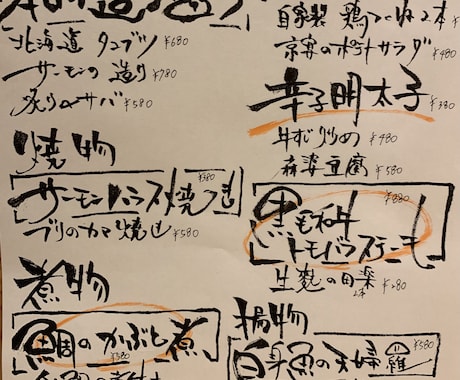 北海道 タコブツ ¥680
サーモンの造り ¥780
炙り〆サバ ¥580
焼物
サーモンハラス焼き ¥380
ブリのカマ焼き ¥580
煮物
鯛のかぶと煮 ¥380
自家製 鶏つくね 2本
ポテトサラダ ¥480
辛子明太子 ¥380
牛すじ炒め ¥480
麻婆豆腐 ¥580
黒毛和牛 ¥880
トモバラステーキ
生麩の田楽 2本 ¥280
揚物
白身魚の天婦羅 ¥580